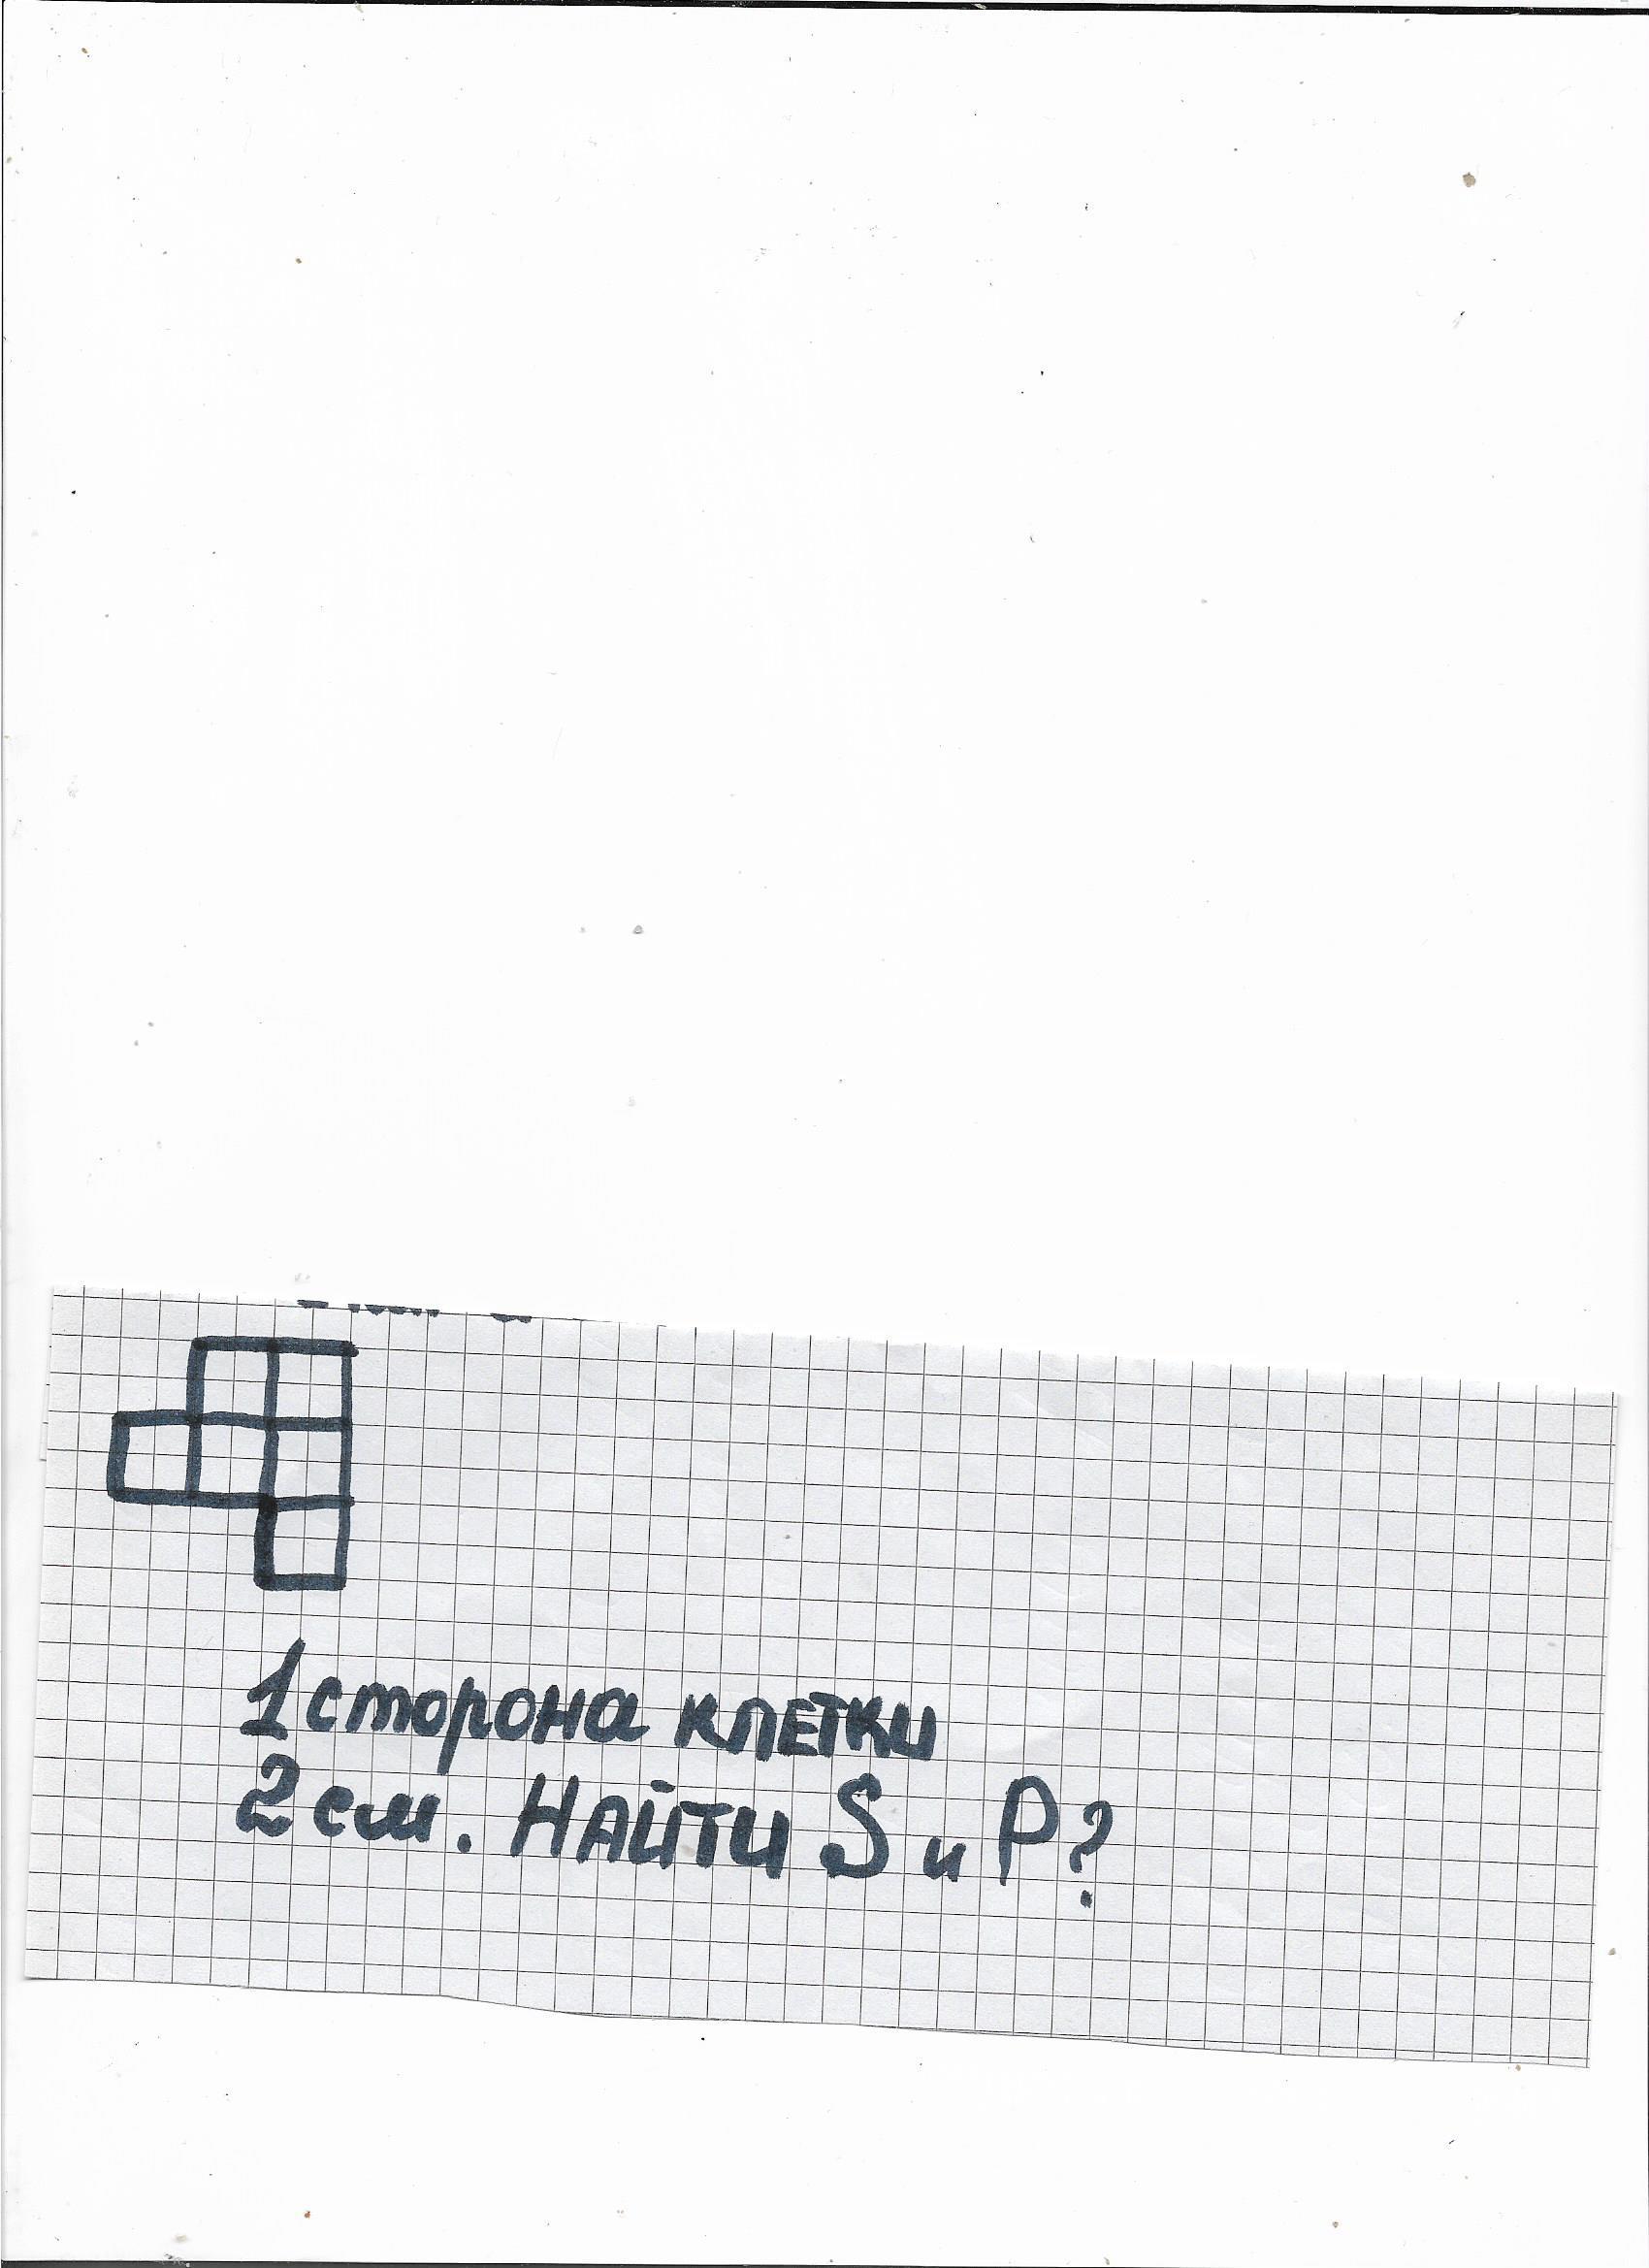 1 сторона клетки
2 см. Найти S и P?